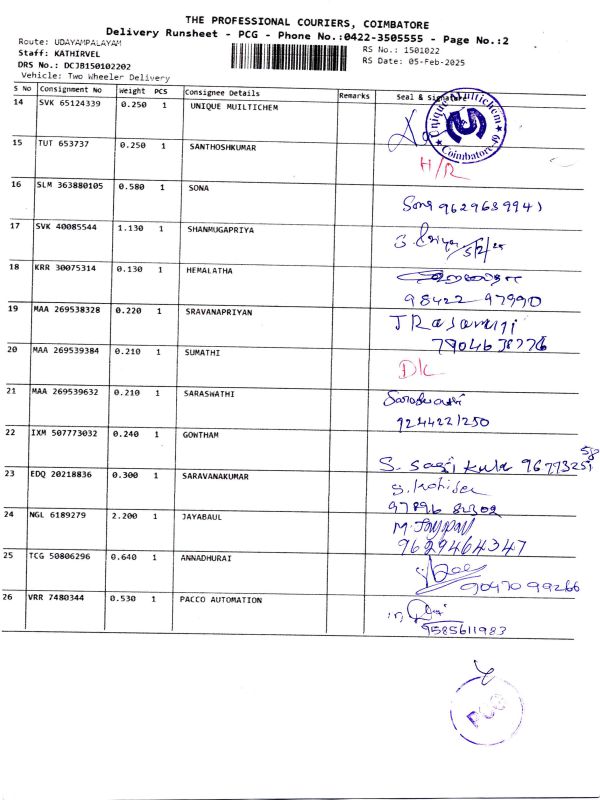 THE PROFESSIONAL COURIERS, COIMBATORE
Delivery Runsheet - PCG - Phone No.:0422-3505555 - Page No.:2
Route: UDAYAMPALAYAM
RS No.: 1501022
Staff: KATHIRVEL
RS Date: 05-Feb-2025
DRS No.: DCJB150102202
Vehicle: Two Wheeler Delivery
S No Consignment No Weight PCS Consignee Details Remarks Seal & Signature
14 SVK 65124339 0.250 1 UNIQUE MUILTICHEM
Unique Multichem
Coimbatore-49
15 TUT 653737 0.250 1 SANTHOSHKUMAR
H/R
16 SLM 363880105 0.580 1 SONA
Sona 9629639941
17 SVK 40085544 1.130 1 SHANMUGAPRIYA
S. Priya 5/2/25
18 KRR 30075314 0.130 1 HEMALATHA
98422 97990
19 MAA 269538328 0.220 1 SRAVANAPRIYAN
7904638776
20 MAA 269539384 0.210 1 SUMATHI
DK
21 MAA 269539632 0.210 1 SARASWATHI
9244221250
22 IXM 507773032 0.240 1 GOWTHAM
23 EDQ 20218836 0.300 1 SARAVANAKUMAR
24 NGL 6189279 2.200 1 JAYABAUL
9629464347
25 TCG 50806296 0.640 1 ANNADHURAI
9047099266
26 VRR 7480344 0.530 1 PACCO AUTOMATION
9585611983
PCG